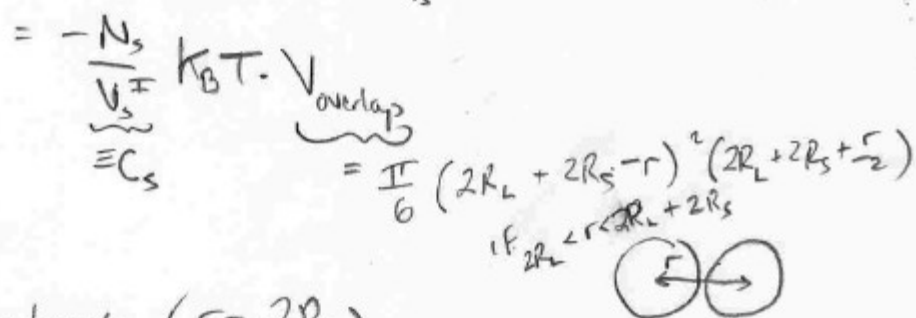 = - N_s / V_s^I K_B T · V_overlap
≡ C_s
= π/6 (2R_L + 2R_S - r)^2 (2R_L + 2R_S + r/2)
if 2R_L < r < 2R_L + 2R_S
r
(r = 2R